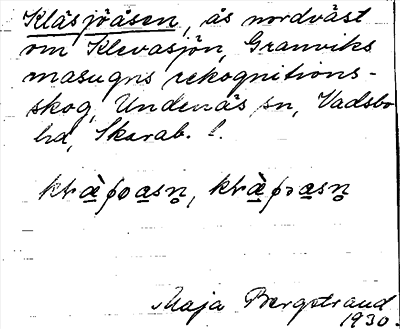 Kläsjöåsen, ås nordväst
om Klevasjön, Granviks
masugns rekognitions-
skog, Undenäs sn, Vadsbo
hd, Skarab. l.
Maja Bergstrand
1930.